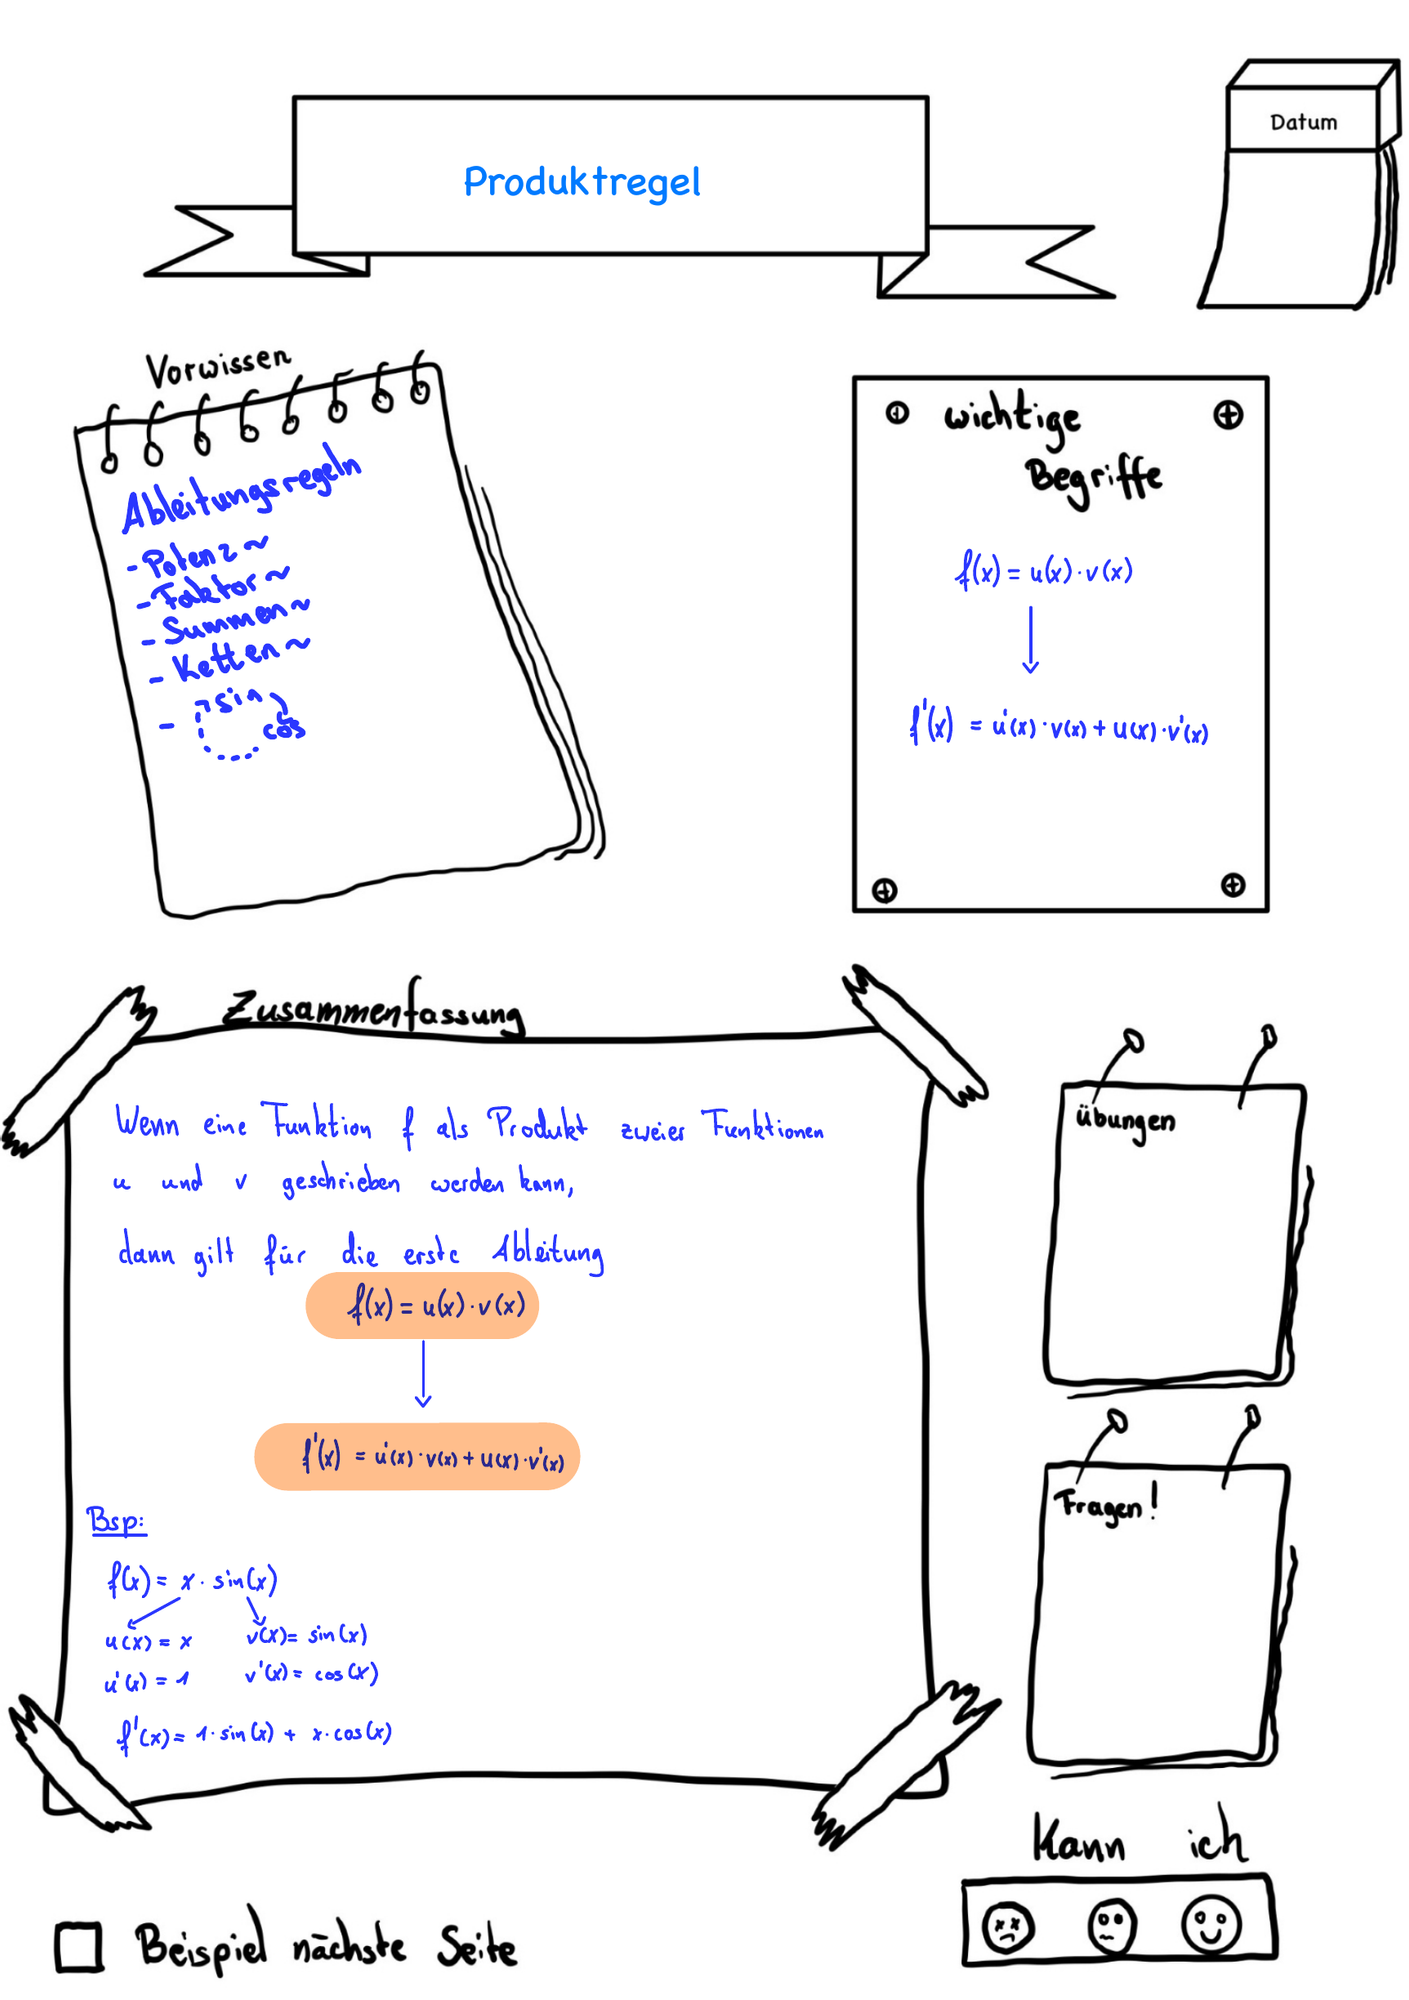 Produktregel
Datum
Vorwissen
Ableitungsregeln
- Potenz ~
- Faktor ~
- Summen ~
- Ketten ~
- sin
cos
wichtige
Begriffe
f(x) = u(x) · v(x)
f'(x) = u'(x) · v(x) + u(x) · v'(x)
Zusammenfassung
Wenn eine Funktion f als Produkt zweier Funktionen
u und v geschrieben werden kann,
dann gilt für die erste Ableitung
f(x) = u(x) · v(x)
f'(x) = u'(x) · v(x) + u(x) · v'(x)
Bsp:
f(x) = x · sin(x)
u(x) = x v(x) = sin(x)
u'(x) = 1 v'(x) = cos(x)
f'(x) = 1 · sin(x) + x · cos(x)
Übungen
Fragen!
Kann ich
Beispiel nächste Seite